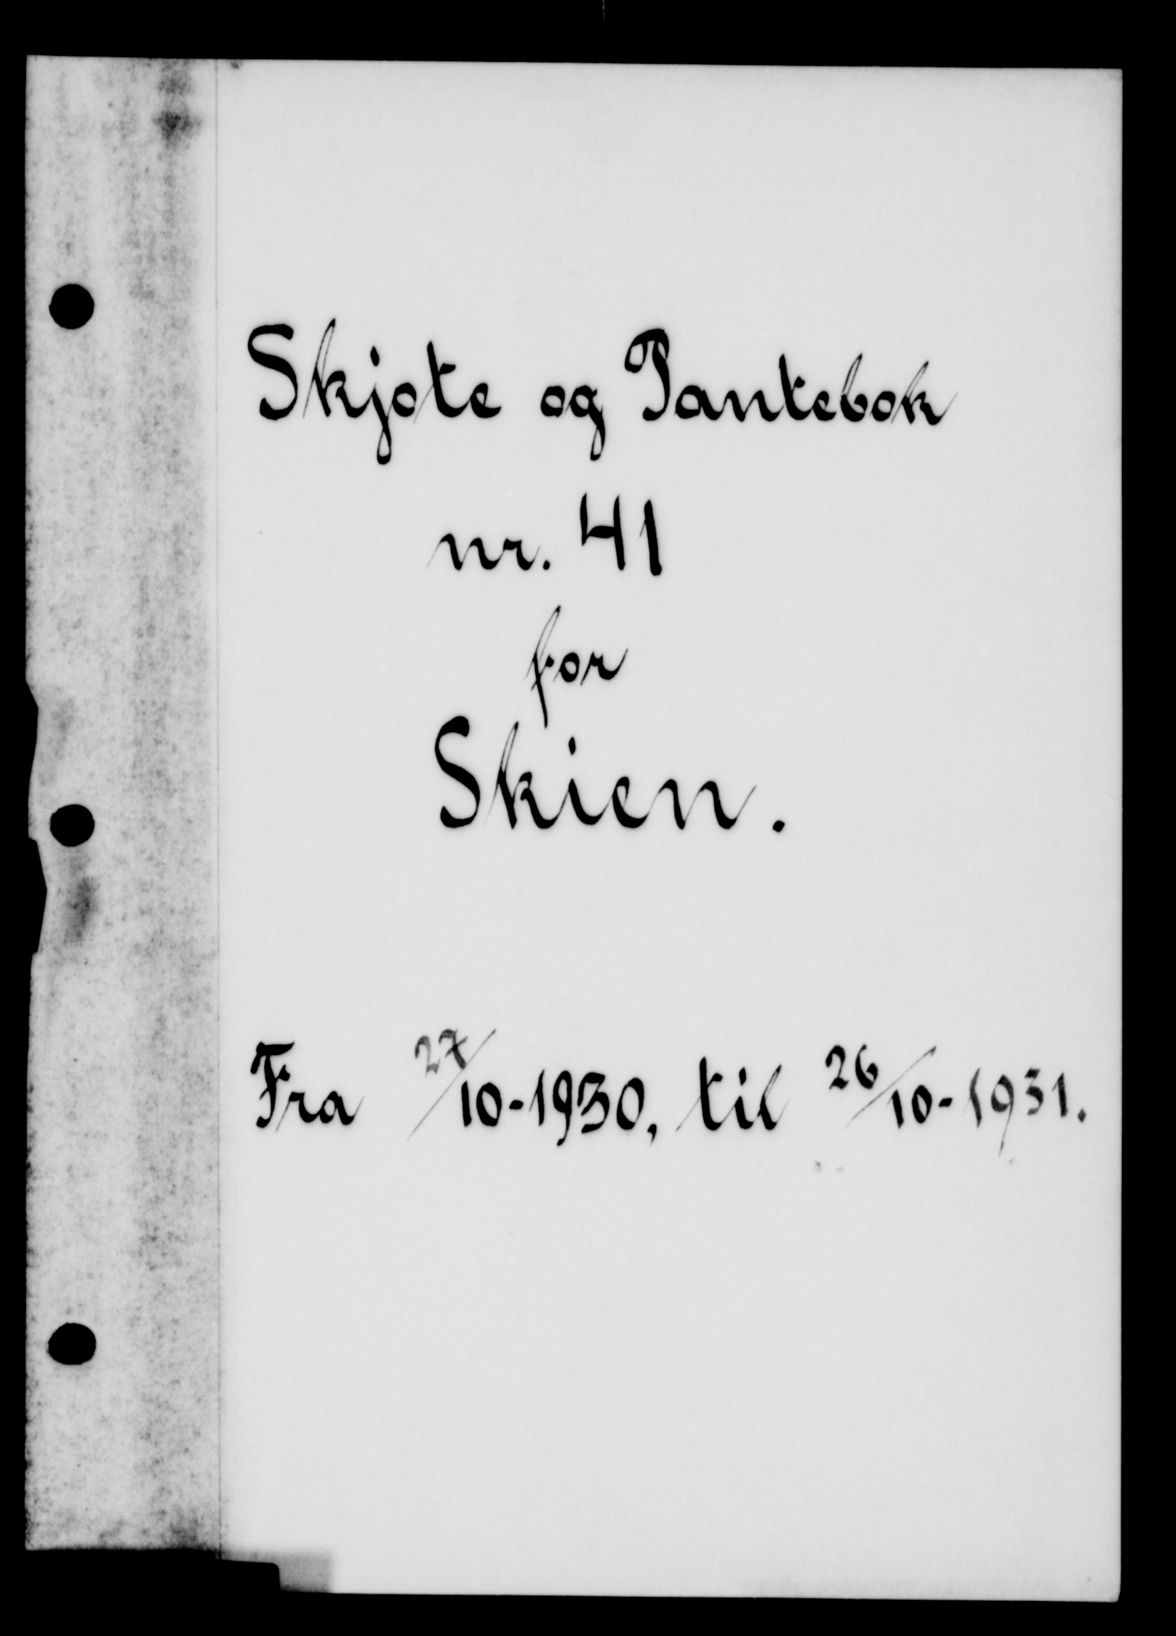 Skjøte og Pantebok
nr. 41
for
Skien.
Fra 27/10-1930, til 26/10-1931.